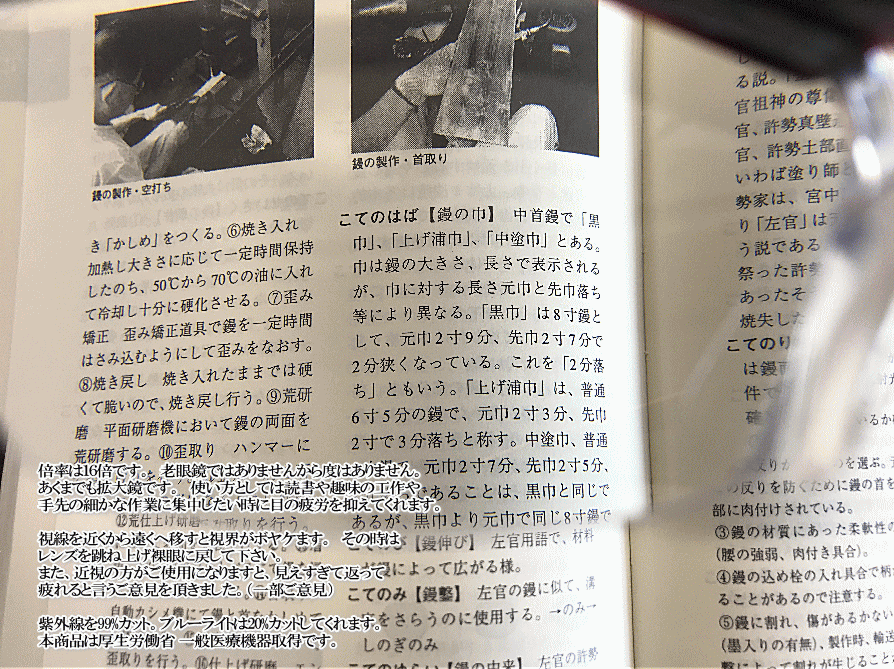 鏝の製作・空打ち
き「かしめ」をつくる。⑥焼き入れ
加熱し大きさに応じて一定時間保持
したのち、50℃から70℃の油に入れ
て冷却し十分に硬化させる。⑦歪み
矯正 歪み矯正道具で鏝を一定時間
はさみ込むようにして歪みをなおす。
⑧焼き戻し 焼き入れたままでは硬
くて脆いので、焼き戻し行う。⑨荒研
磨 平面研磨機において鏝の両面を
荒研磨する。⑩歪取り ハンマーに
鏝の製作・首取り
こてのはば【鏝の巾】 中首鏝で「黒
巾」、「上げ浦巾」、「中塗巾」とある。
巾は鏝の大きさ、長さで表示される
が、巾に対する長さ元巾と先巾落ち
等により異なる。「黒巾」は8寸鏝と
して、元巾2寸9分、先巾2寸7分で
2分狭くなっている。これを「2分落
ち」ともいう。「上げ浦巾」は、普通
6寸5分の鏝で、元巾2寸3分、先巾
2寸で3分落ちと称す。中塗巾、普通
元巾2寸7分、先巾2寸5分、
あることは、黒巾と同じで
あるが、黒巾より元巾で同じ8寸鏝で
【鏝伸び】 左官用語で、材料
によって広がる様。
こてのみ【鏝鑿】 左官の鏝に似て、溝
をさらうのに使用する。→のみ→
しのぎのみ
る説。
官祖神の尊
官、許勢真壁
官、許勢土部
いわば塗り師
勢家は、宮中
り「左官」は
う説である
祭った許勢
あったそ
焼失した
こてのり
は鏝
件で
を選ぶ。
の反りを防ぐために鏝の首を
部に肉付けされている。
③鏝の材質にあった柔軟性の
(腰の強弱、肉付き具合)。
④鏝の込め栓の入れ具合で柄
ることがあるので注意する。
⑤鏝に割れ、傷があるかない
(墨入りの有無)、製作時、輸送
倍率は1.6倍です。 老眼鏡ではありませんから度はありません。
あくまでも拡大鏡です。 使い方としては読書や趣味の工作や、
手先の細かな作業に集中したい時に目の疲労を抑えてくれます。
視線を近くから遠くへ移すと視界がボヤケます。 その時は
レンズを跳ね上げ裸眼に戻して下さい。
また、近視の方がご使用になりますと、見えすぎて返って
疲れると言うご意見を頂きました。(一部ご意見)
紫外線を99%カット。ブルーライトは20%カットしてくれます。
本商品は厚生労働省 一般医療機器取得です。